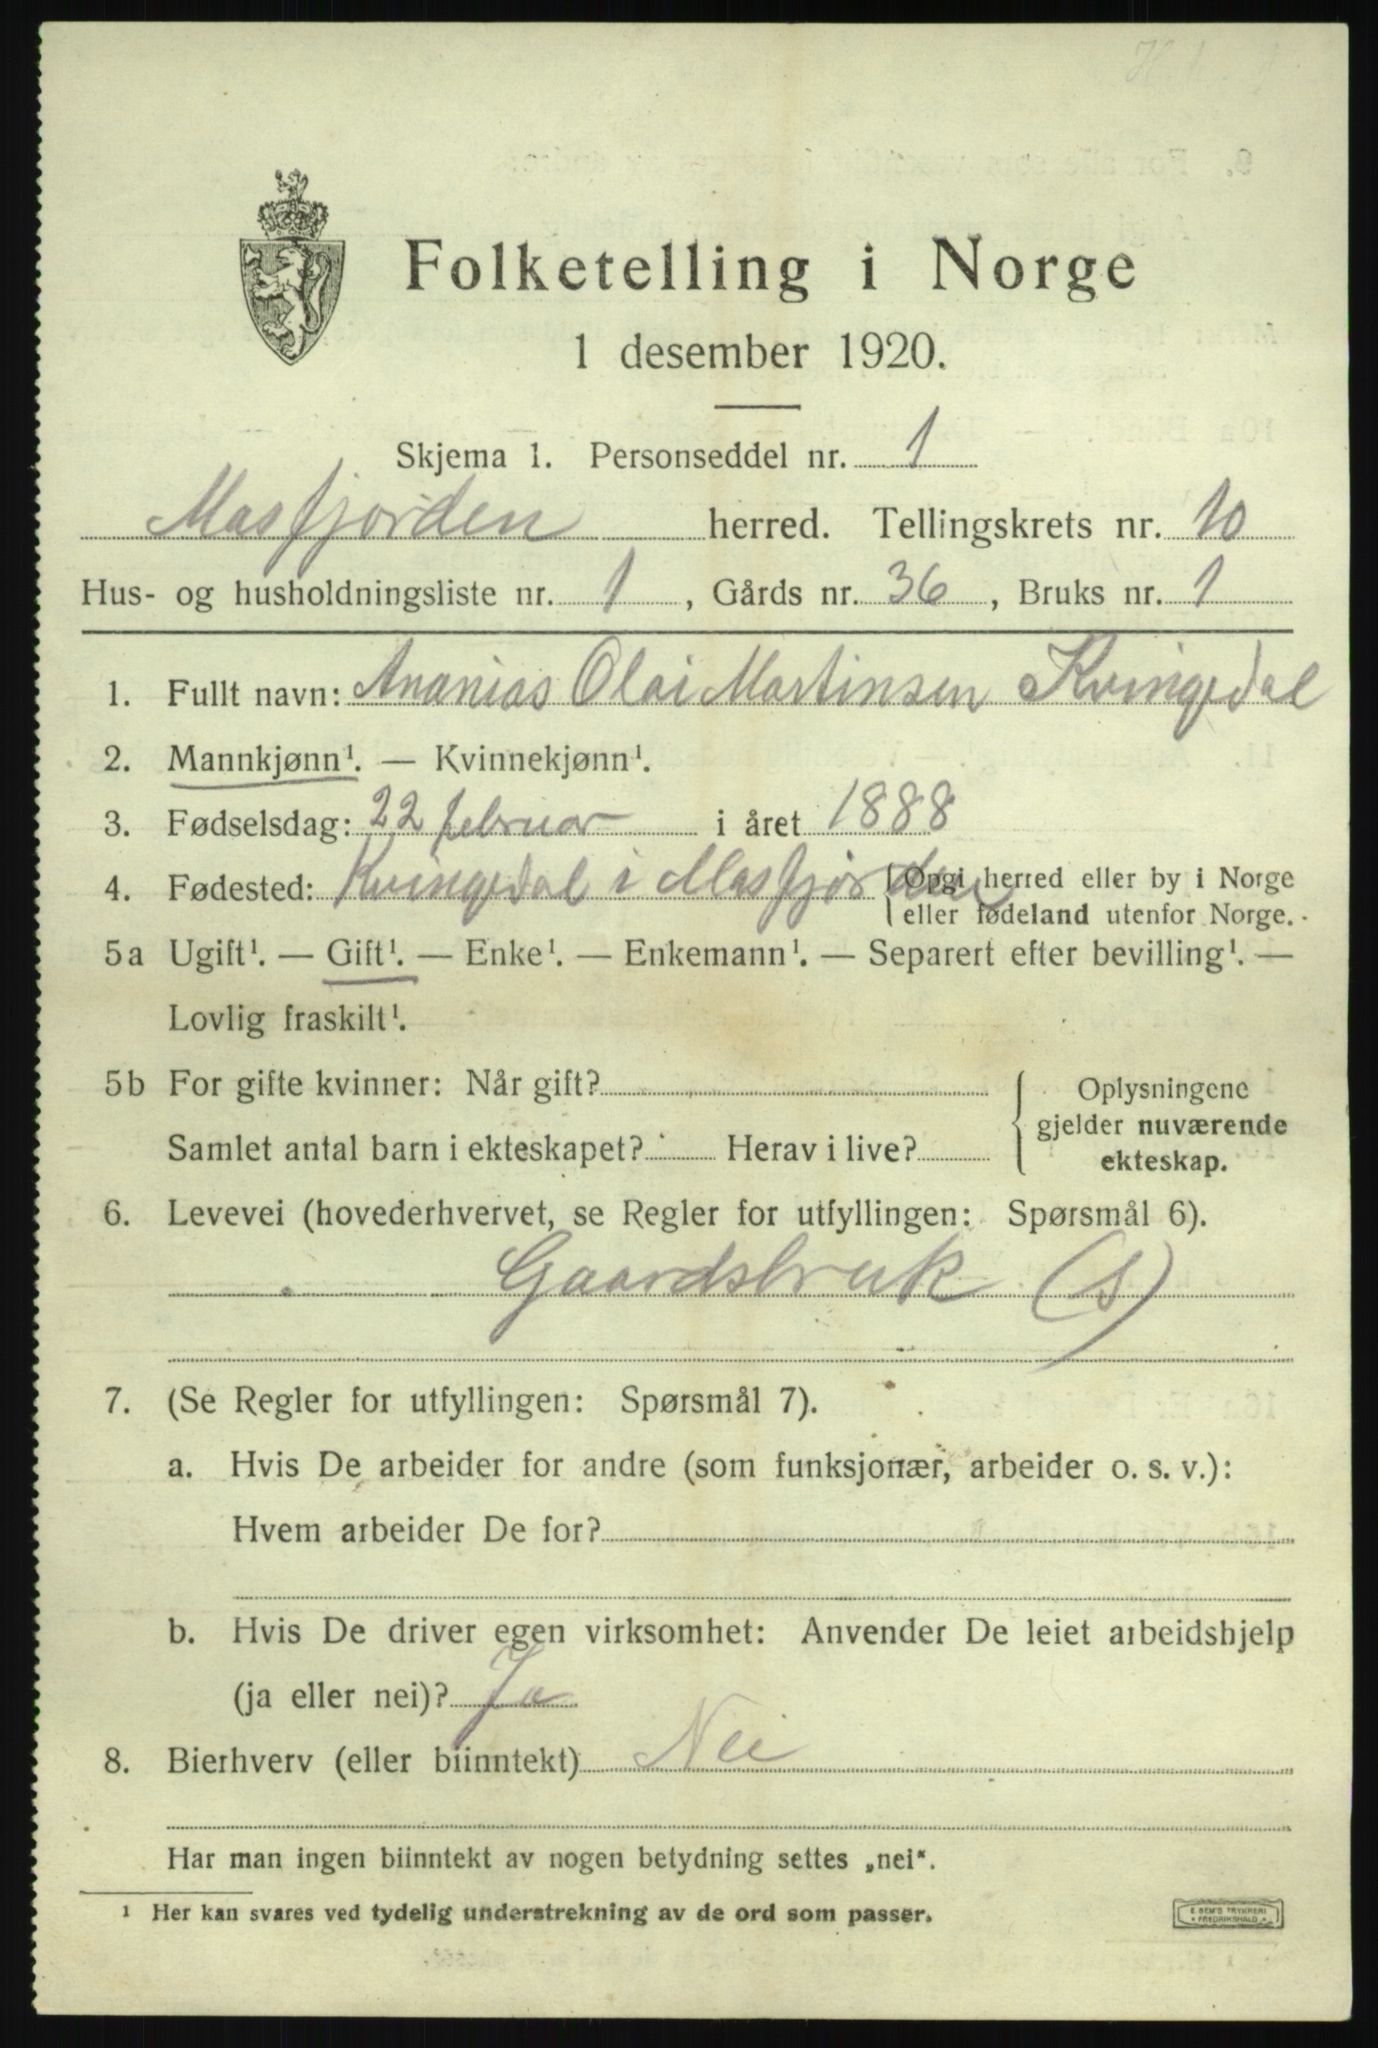 Folketelling i Norge
1 desember 1920.
Skjema 1. Personseddel nr. 1
Masfjorden herred. Tellingskrets nr. 10
Hus- og husholdningsliste nr. 1, Gårds nr. 36, Bruks nr. 1
1. Fullt navn: Ananias Olai Martinsen Kvingedal
2. Mannkjønn¹. — Kvinnekjønn¹.
3. Fødselsdag: 22 februar i året 1888
4. Fødested: Kvingedal i Masfjorden {Opgi herred eller by i Norge
eller fødeland utenfor Norge.
5a Ugift¹. — Gift¹. — Enke¹. — Enkemann¹. — Separert efter bevilling¹. —
Lovlig fraskilt¹.
5b For gifte kvinner: Når gift?
Samlet antal barn i ekteskapet? Herav i live?
{ Oplysningene
gjelder nuværende
ekteskap.
6. Levevei (hovederhvervet, se Regler for utfyllingen: Spørsmål 6).
Gaardsbruk (s)
7. (Se Regler for utfyllingen: Spørsmål 7).
a. Hvis De arbeider for andre (som funksjonær, arbeider o. s. v.):
Hvem arbeider De for?
b. Hvis De driver egen virksomhet: Anvender De leiet arbeidshjelp
(ja eller nei)? Ja
8. Bierhverv (eller biinntekt) Nei
Har man ingen biinntekt av nogen betydning settes „nei“.
¹ Her kan svares ved tydelig understrekning av de ord som passer.
E. SEM'S TRYKKERI
FREDRIKSHALD